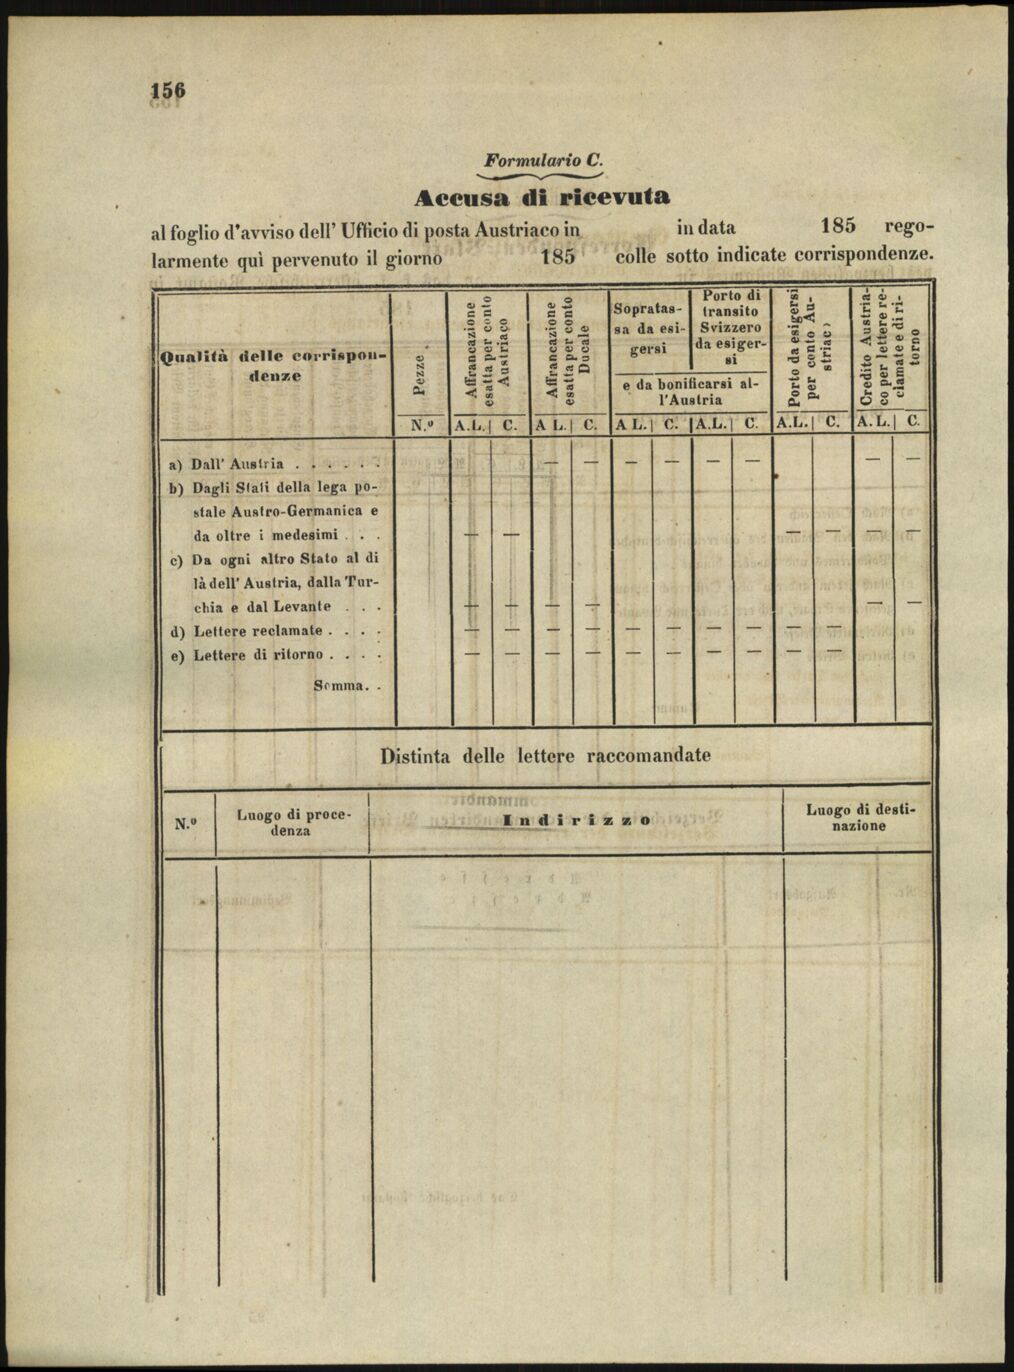 156
Formulario C.
Accusa di ricevuta
al foglio d'avviso dell' Ufficio di posta Austriaco in in data 185 rego-
larmente quì pervenuto il giorno 185 colle sotto indicate corrispondenze.
Qualità delle corrispon-
denze
Pezze.
Affrancazione
esatta per conto
Austriaco
Affrancazione
esatta per conto
Ducale
Sopratas-
sa da esi-
gersi
Porto di
transito
Svizzero
da esiger-
si
e da bonificarsi al-
l'Austria
Porto da esigersi
per conto Au-
striaco
Credito Austria-
co per lettere re-
clamate e di ri-
torno
N.º A.L. C. A L. C. A L. C. A.L. C. A.L. C. A.L. C.
a) Dall' Austria . . . . . . — — — — — — — —
b) Dagli Stati della lega po-
stale Austro-Germanica e
da oltre i medesimi . . . — — — — — —
c) Da ogni altro Stato al di
là dell' Austria, dalla Tur-
chia e dal Levante . . . — — — — — —
d) Lettere reclamate . . . . — — — — — — — — — —
e) Lettere di ritorno . . . . — — — — — — — — — —
Somma. .
Distinta delle lettere raccomandate
N.º
Luogo di proce-
denza
Indirizzo
Luogo di desti-
nazione